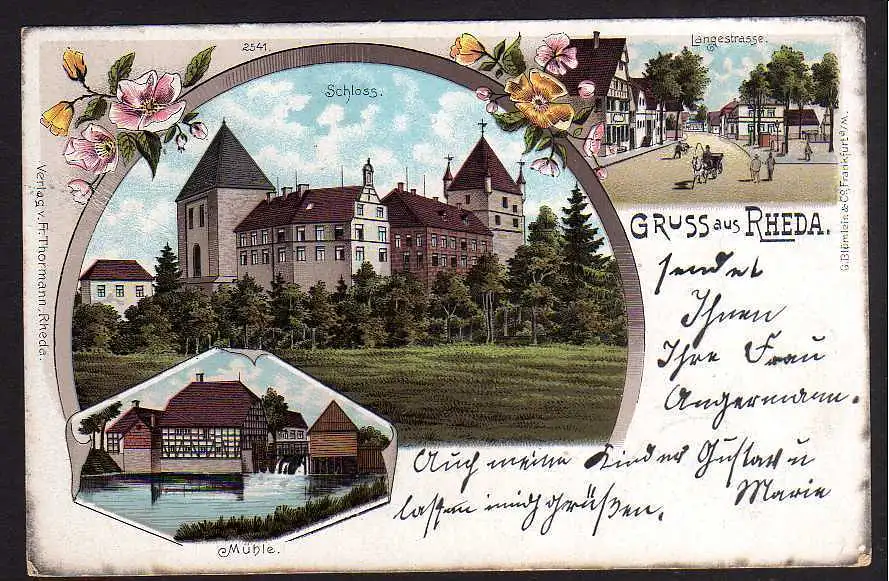 2541.
Schloss.
Langestrasse.
Verlag v. Fr. Thormann, Rheda.
G. Blümlein & Co. Frankfurt a/M.
GRUSS AUS RHEDA.
sendet
Ihnen
Ihre Frau
Angermann.
Auch meine Kinder Gustav u
Marie
lassen mich grüßen.
Mühle.